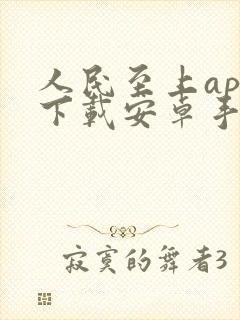 人民至上ap
下载安卓手
寂寞的舞者3